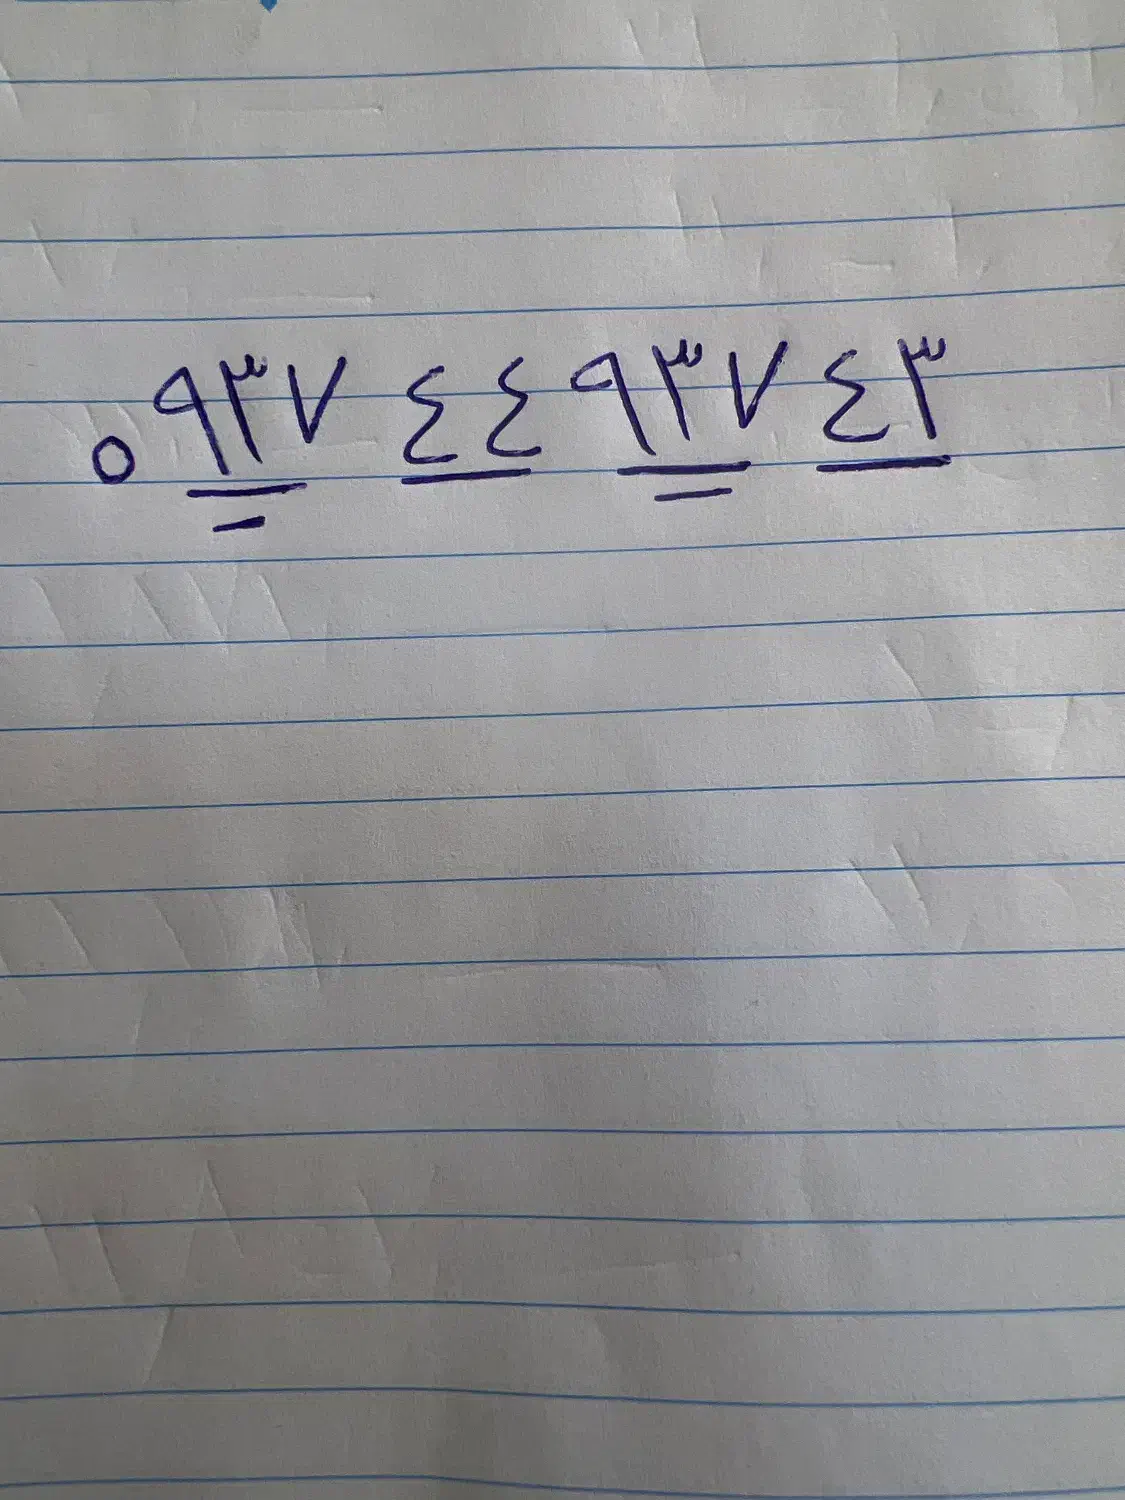 ٥ ٩٣٧ ٤٤ ٩٣٧ ٤٣